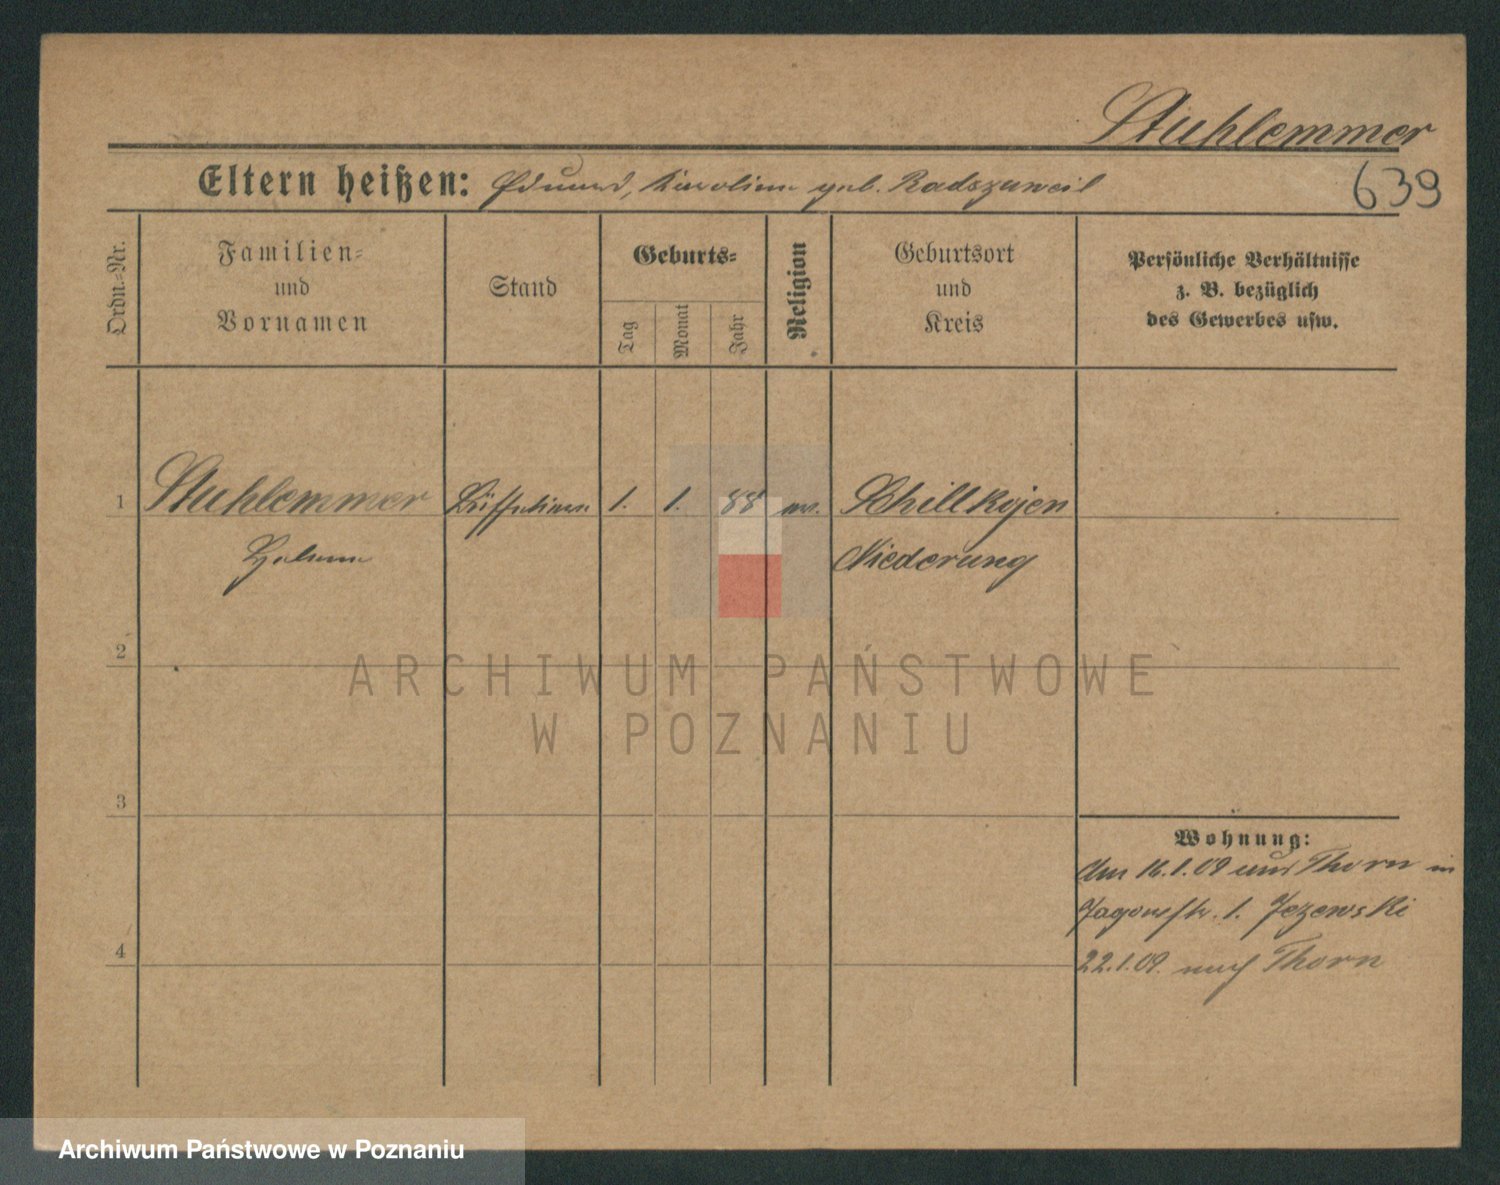 Stuhlemmer
639
Eltern heißen: Eduard, Karoline geb. Radszuweil
Ordn.-Nr.
Familien-
und
Vornamen
Stand
Geburts-
Tag
Monat
Jahr
Religion
Geburtsort
und
Kreis
Persönliche Verhältnisse
z. B. bezüglich
des Gewerbes usw.
1 Stuhlemmer 1. 1. 88 Schillkojen
Helene
Niederung
2
ARCHIWUM PAŃSTWOWE
W POZNANIU
3
Wohnung:
Am 16.1.09 aus Thorn in
Jagowstr. 1. Jezewski
4
22.1.09. nach Thorn
Archiwum Państwowe w Poznaniu